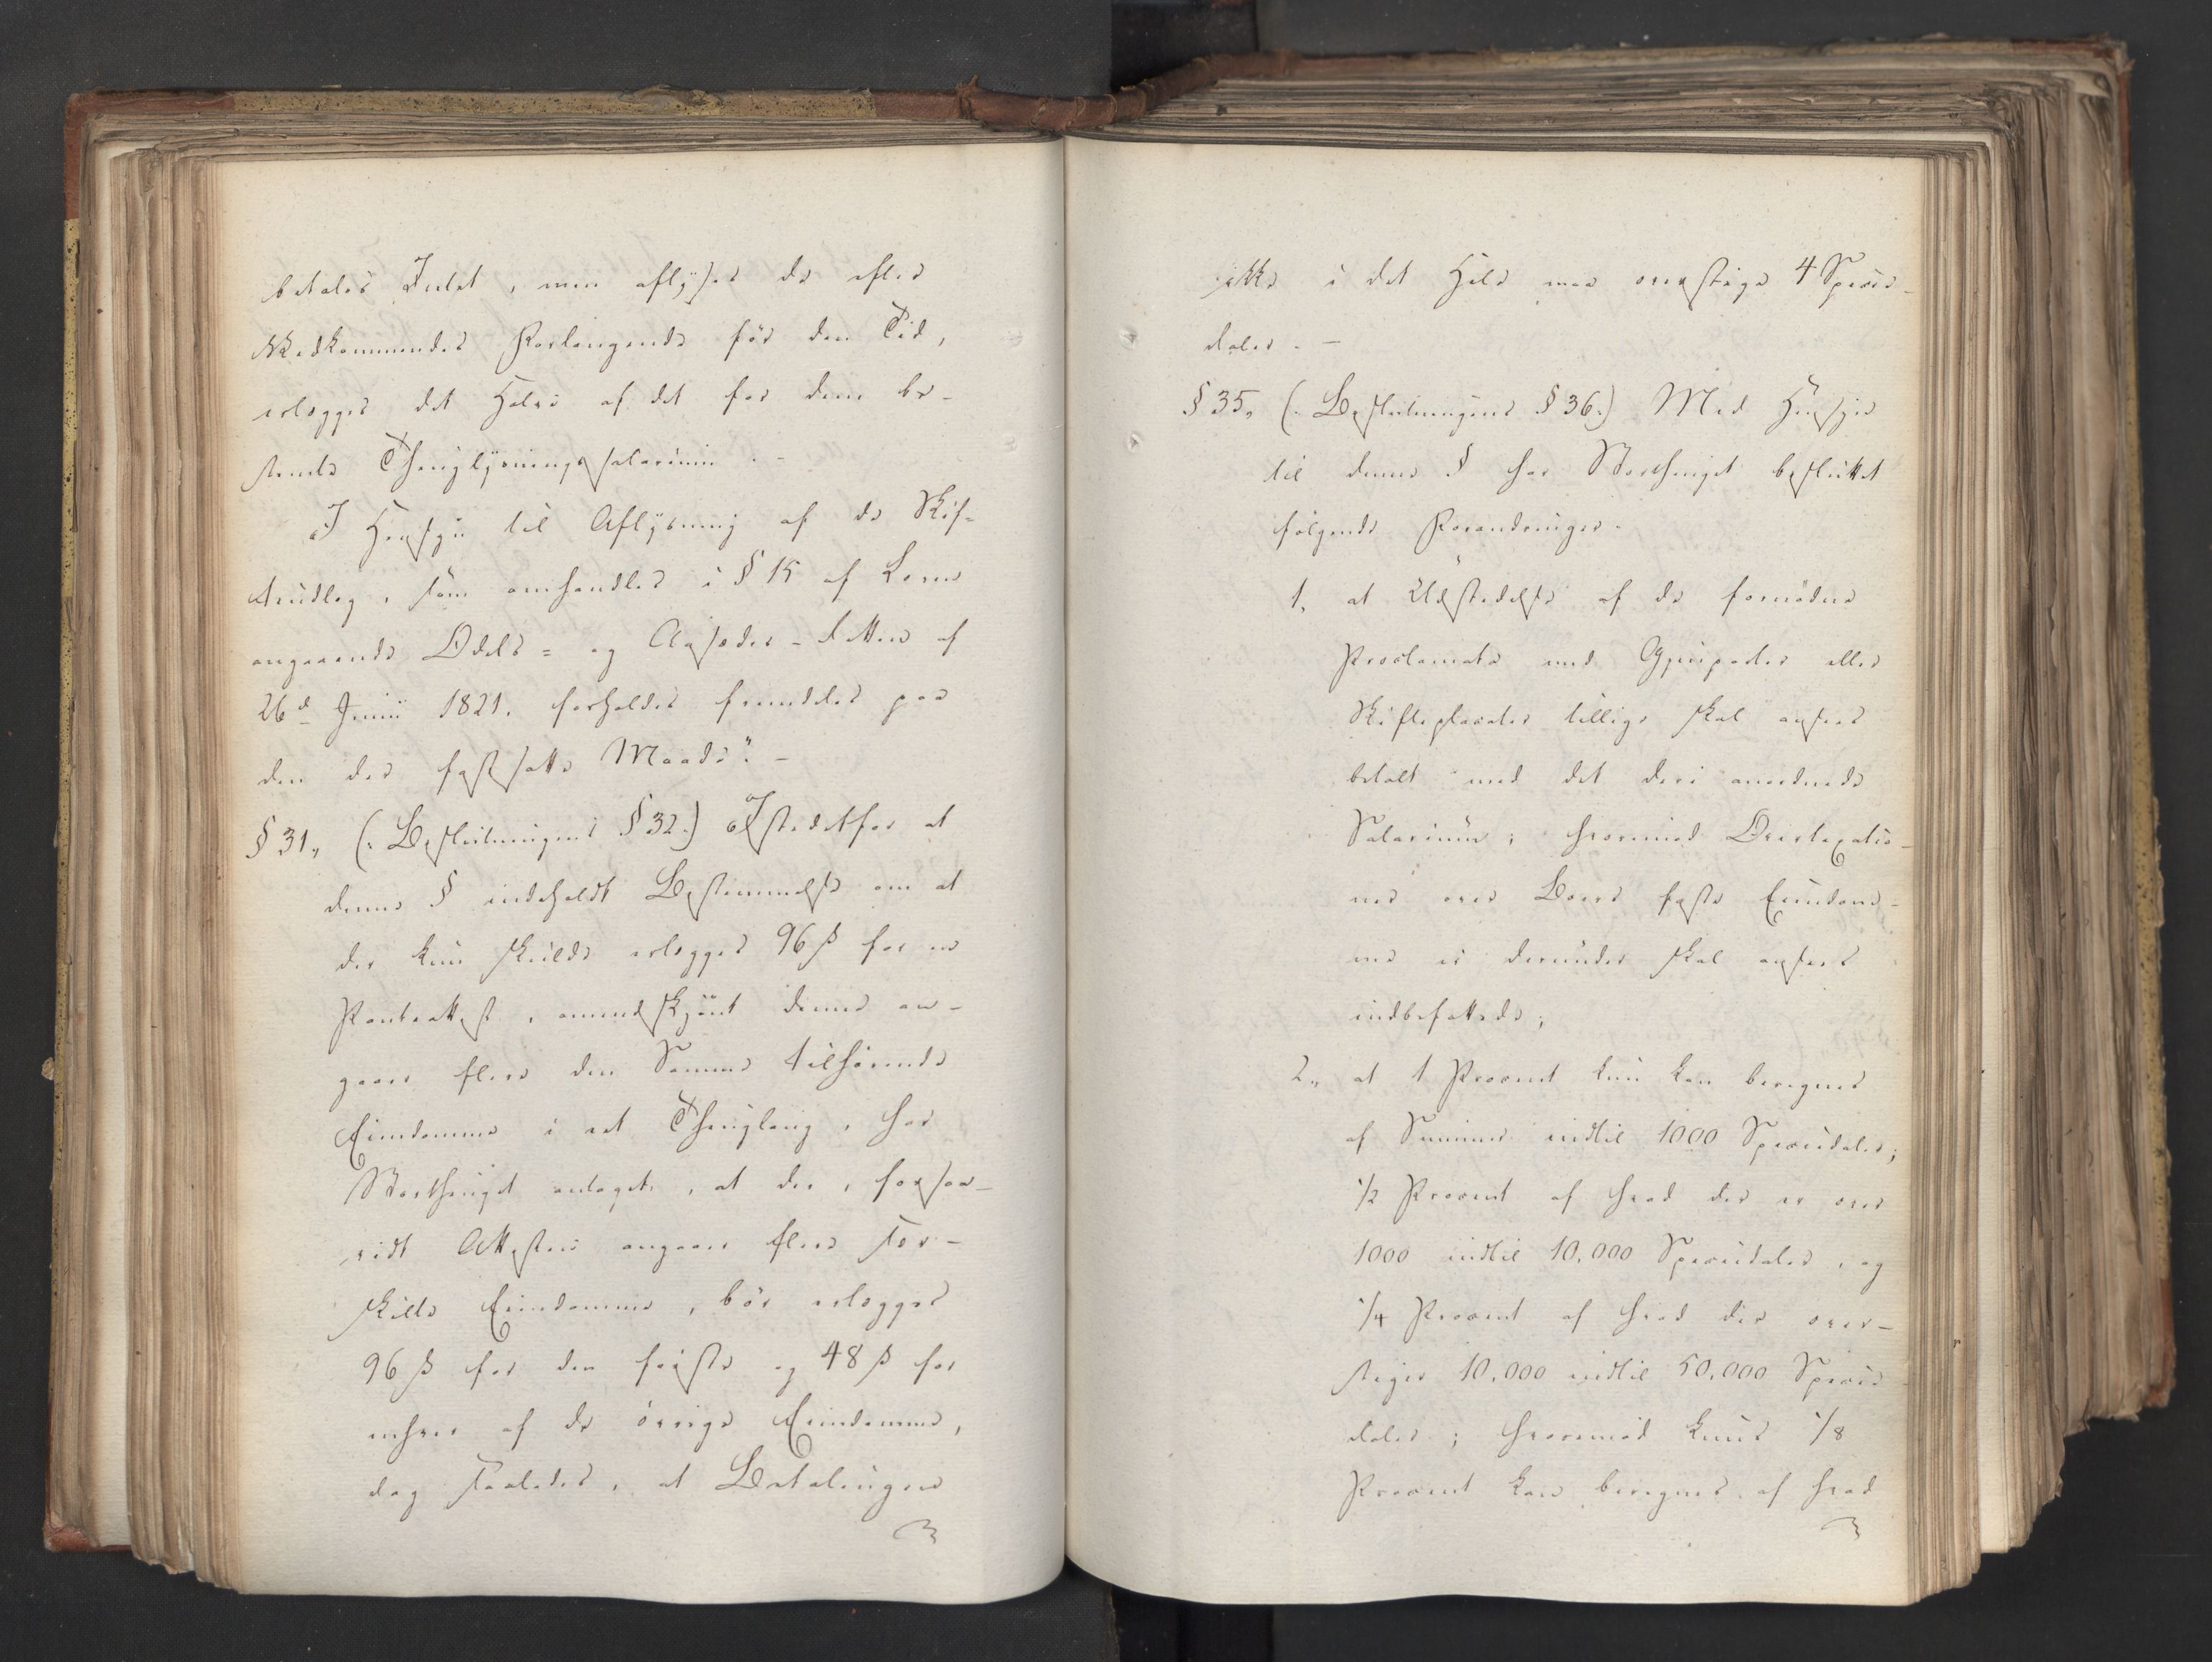 betales Intet, men aflyses de efter
Vedkommendes Forlangende før den Tid,
erlægges det Halve af det for dem be-
stemte Thinglysningssalarium. -
I Hensyn til Aflysning af de Skif-
teudlæg, som omhandles i § 15 af Loven
angaaende Odels- og Aasædes-Retten af
26d Junii 1821, forholdes fremdeles paa
den der fastsatte Maade". -
§ 31, (: Beslutningens § 32.) Istedetfor at
denne § indeholdt Bestemmelse om at
der kun skulde erlægges 96 ß for en
Panteattest, omendskjönt denne an-
gaaer flere den Samme tilhørende
Eiendomme i eet Thinglaug, har
Storthinget antaget, at der, forsaa-
vidt Attesten angaaer flere sær-
skilte Eiendomme, bör erlægges
96 ß for den første og 48 ß for
enhver af de övrige Eiendomme,
dog saaledes, at Betalingen
ikke i det Hele maa overstige 4 Specie-
daler. -
§ 35, (: Beslutningens § 36.) Med Hensyn
til denne § har Storthinget besluttet
følgende Forandringer.
1, at Udstedelse af de fornødne
Proclamata med Gjenparter eller
Skifteplacater tillige skal ansees
betalt med det deri anordnede
Salarium; hvorimod Overtaxatio-
nen over Boers faste Eiendom-
me ei derunder skal ansees
indbefattede;
2, at 1 Procent kun kan beregnes
af Summer indtil 1000 Speciedaler;
1/2 Procent af hvad der er over
1000 indtil 10,000 Speciedaler, og
1/4 Procent af hvad der over-
stiger 10,000 indtil 50,000 Specie
daler; hvorimod kun 1/8
Procent kan beregnes af hvad